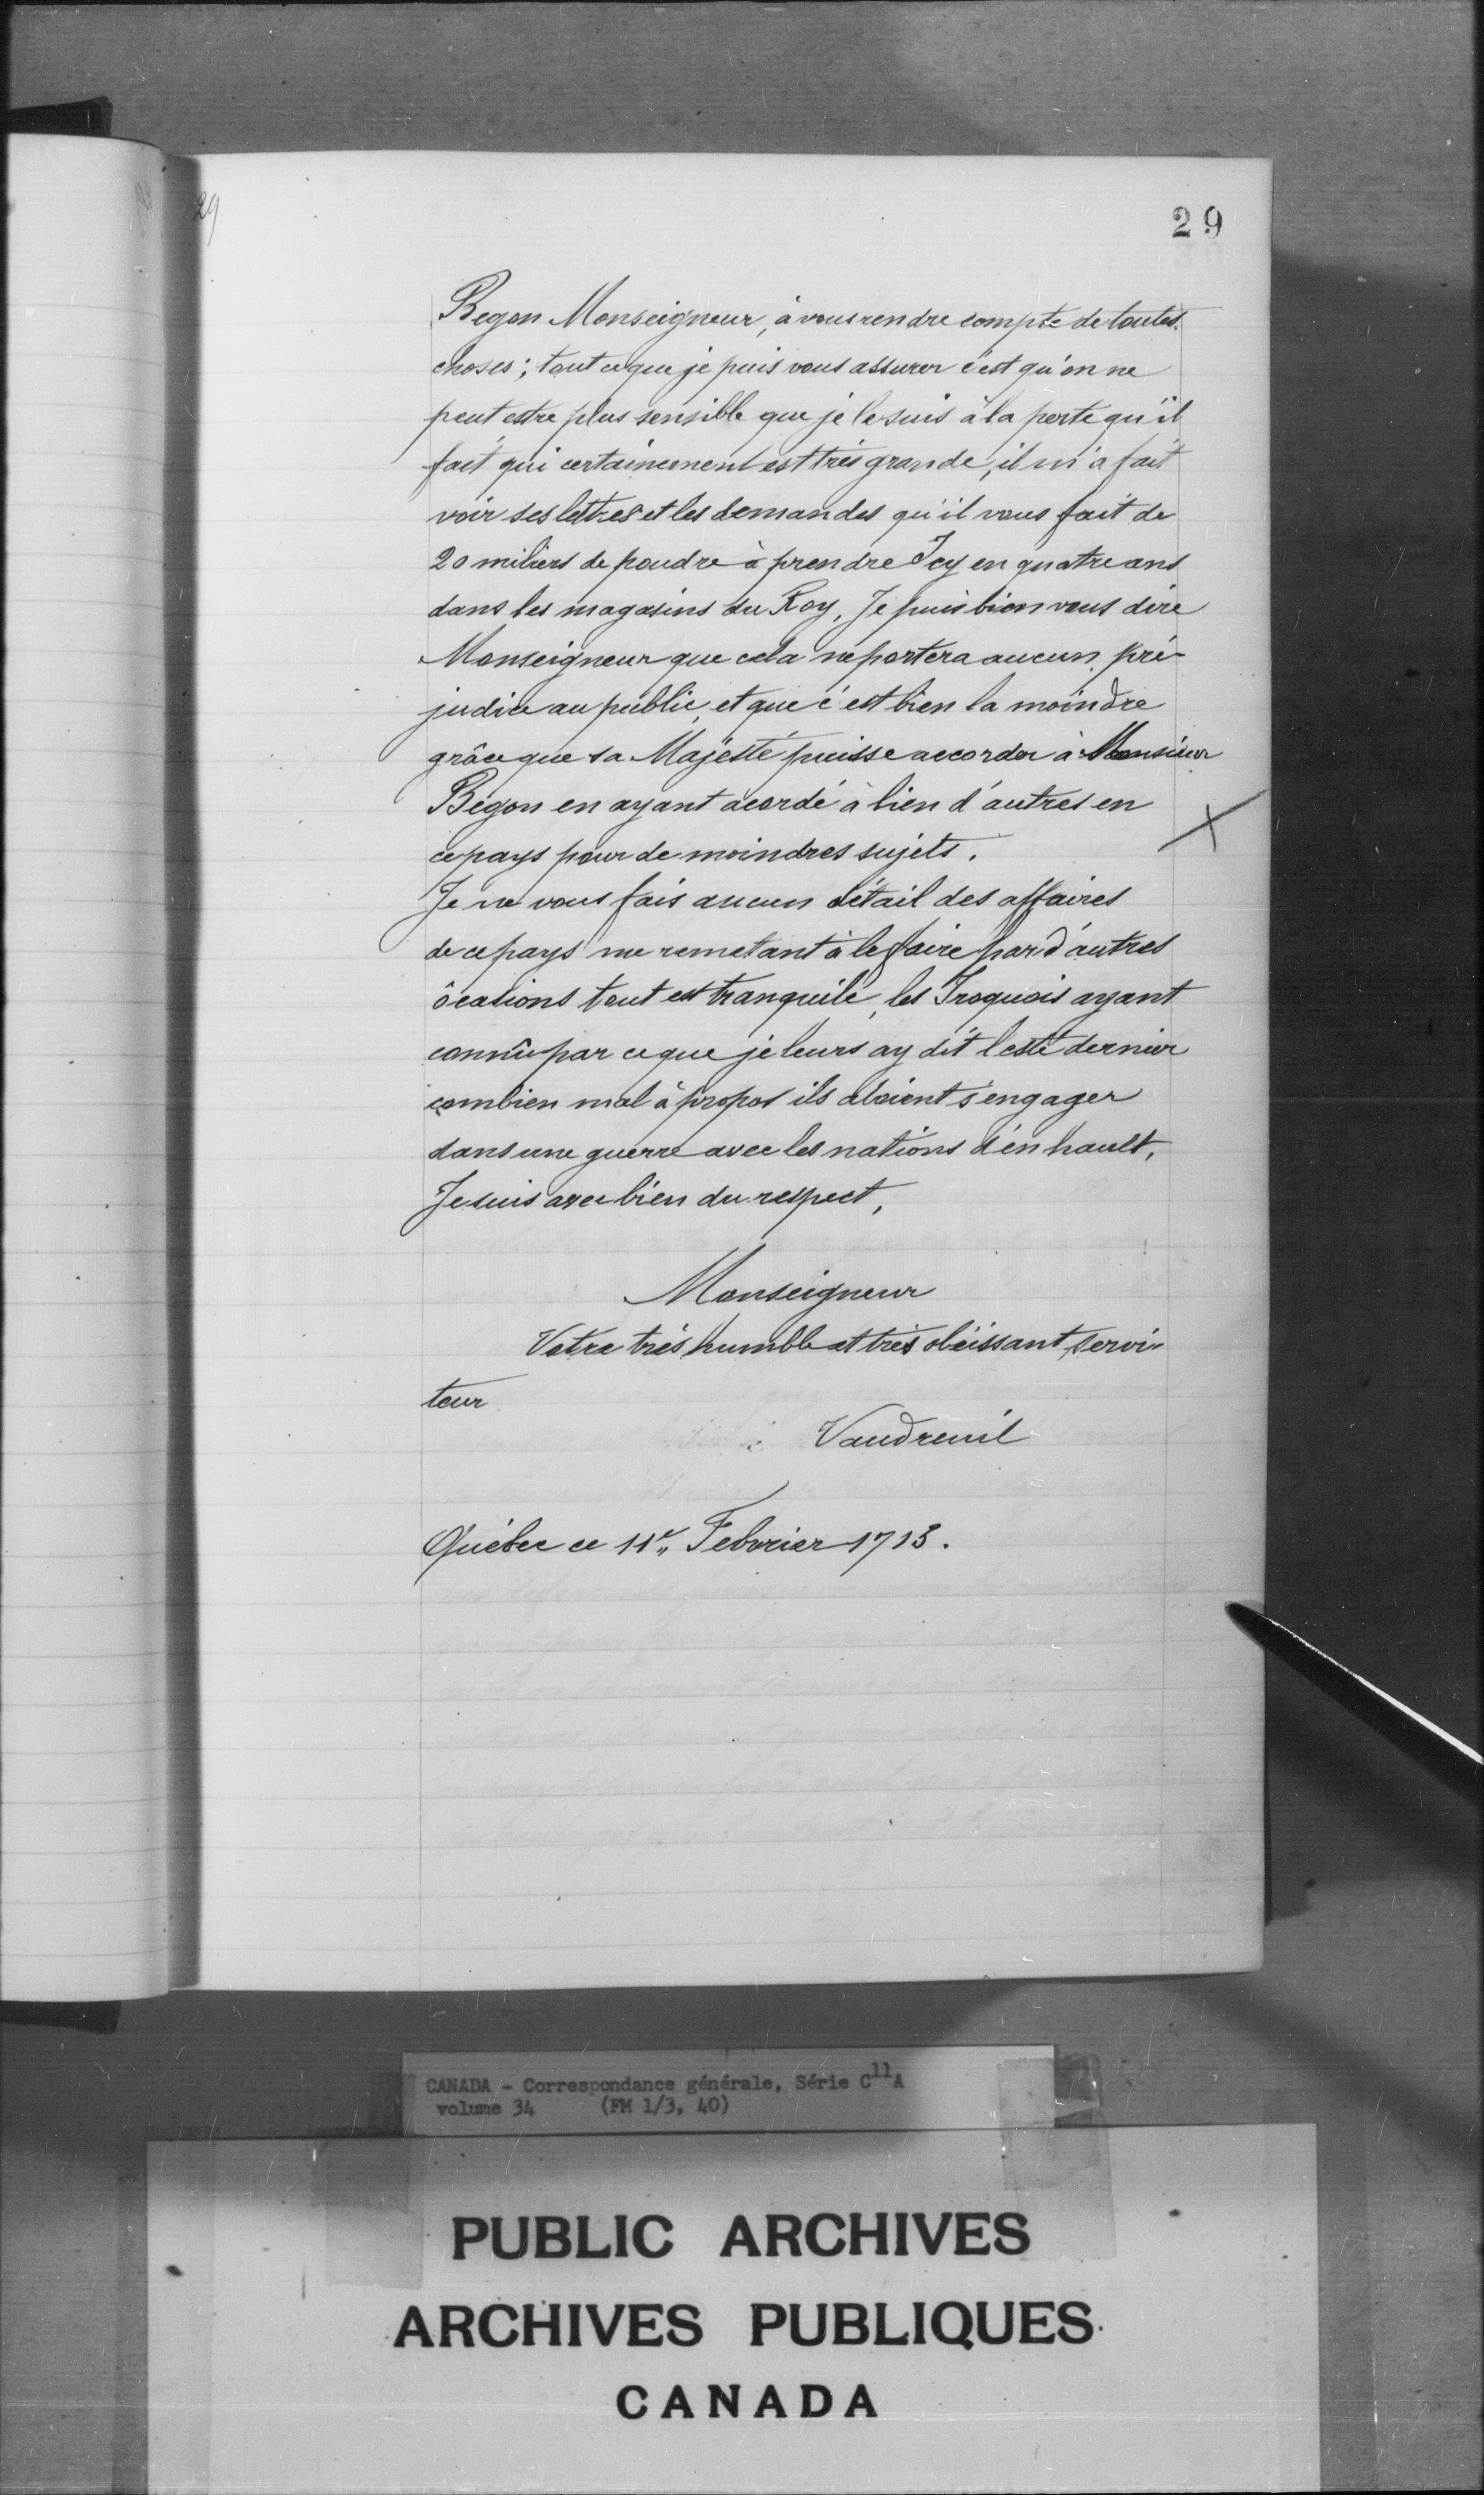 29
29
Begon Monseigneur, à vous rendre compte de toutes
choses; tout ce que je puis vous assurer c'est qu'on ne
peut estre plus sensible que je le suis à la perte qu'il
fait qui certainement est très grande, il m'a fait
voir ses lettres et les demandes qu'il vous fait de
20 miliers de poudre à prendre Icy en quatre ans
dans les magasins du Roy, Je puis bien vous dire
Monseigneur que cela ne portera aucun pré-
judice au public, et que c'est bien la moindre
grâce que sa Majesté puisse accorder à Monsieur
Bégon en ayant acordé à bien d'autres en
ce pays pour de moindres sujets.
Je ne vous fais aucun détail des affaires
de ce pays me remetant à le faire par d'autres
ôcasions tout est tranquile, les Iroquois ayant
connû par ce que je leurs ay dit l'esté dernier
combien mal à propos ils aloient s'engager
dans une guerre avec les nations d'en hault,
Je suis avec bien du respect,
Monseigneur
Votre très humble et très obéissant servi-
teur
Vaudreuil
Québec ce 11e Febvrier 1713.
CANADA - Correspondance générale, Série C11A
volume 34 (FM 1/3, 40)
PUBLIC ARCHIVES
ARCHIVES PUBLIQUES
CANADA